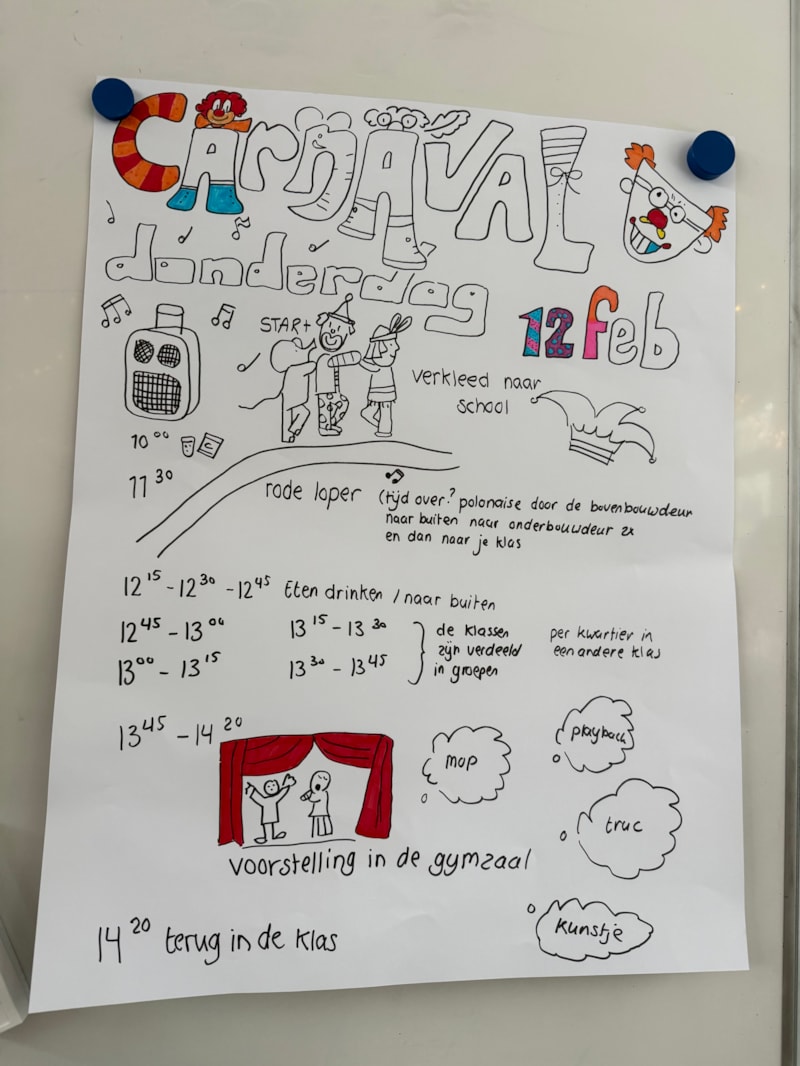 CARNAVAL
donderdag
12 feb
START
verkleed naar
school
10 00
11 30
rode loper
(tijd over? polonaise door de bovenbouwdeur
naar buiten naar onderbouwdeur 2x
en dan naar je klas
12 15 - 12 30 - 12 45 Eten drinken / naar buiten
12 45 - 13 00
13 15 - 13 30
13 00 - 13 15
13 30 - 13 45
de klassen
zijn verdeeld
in groepen
per kwartier in
een andere klas
13 45 - 14 20
mop
playback
truc
kunstje
voorstelling in de gymzaal
14 20 terug in de klas